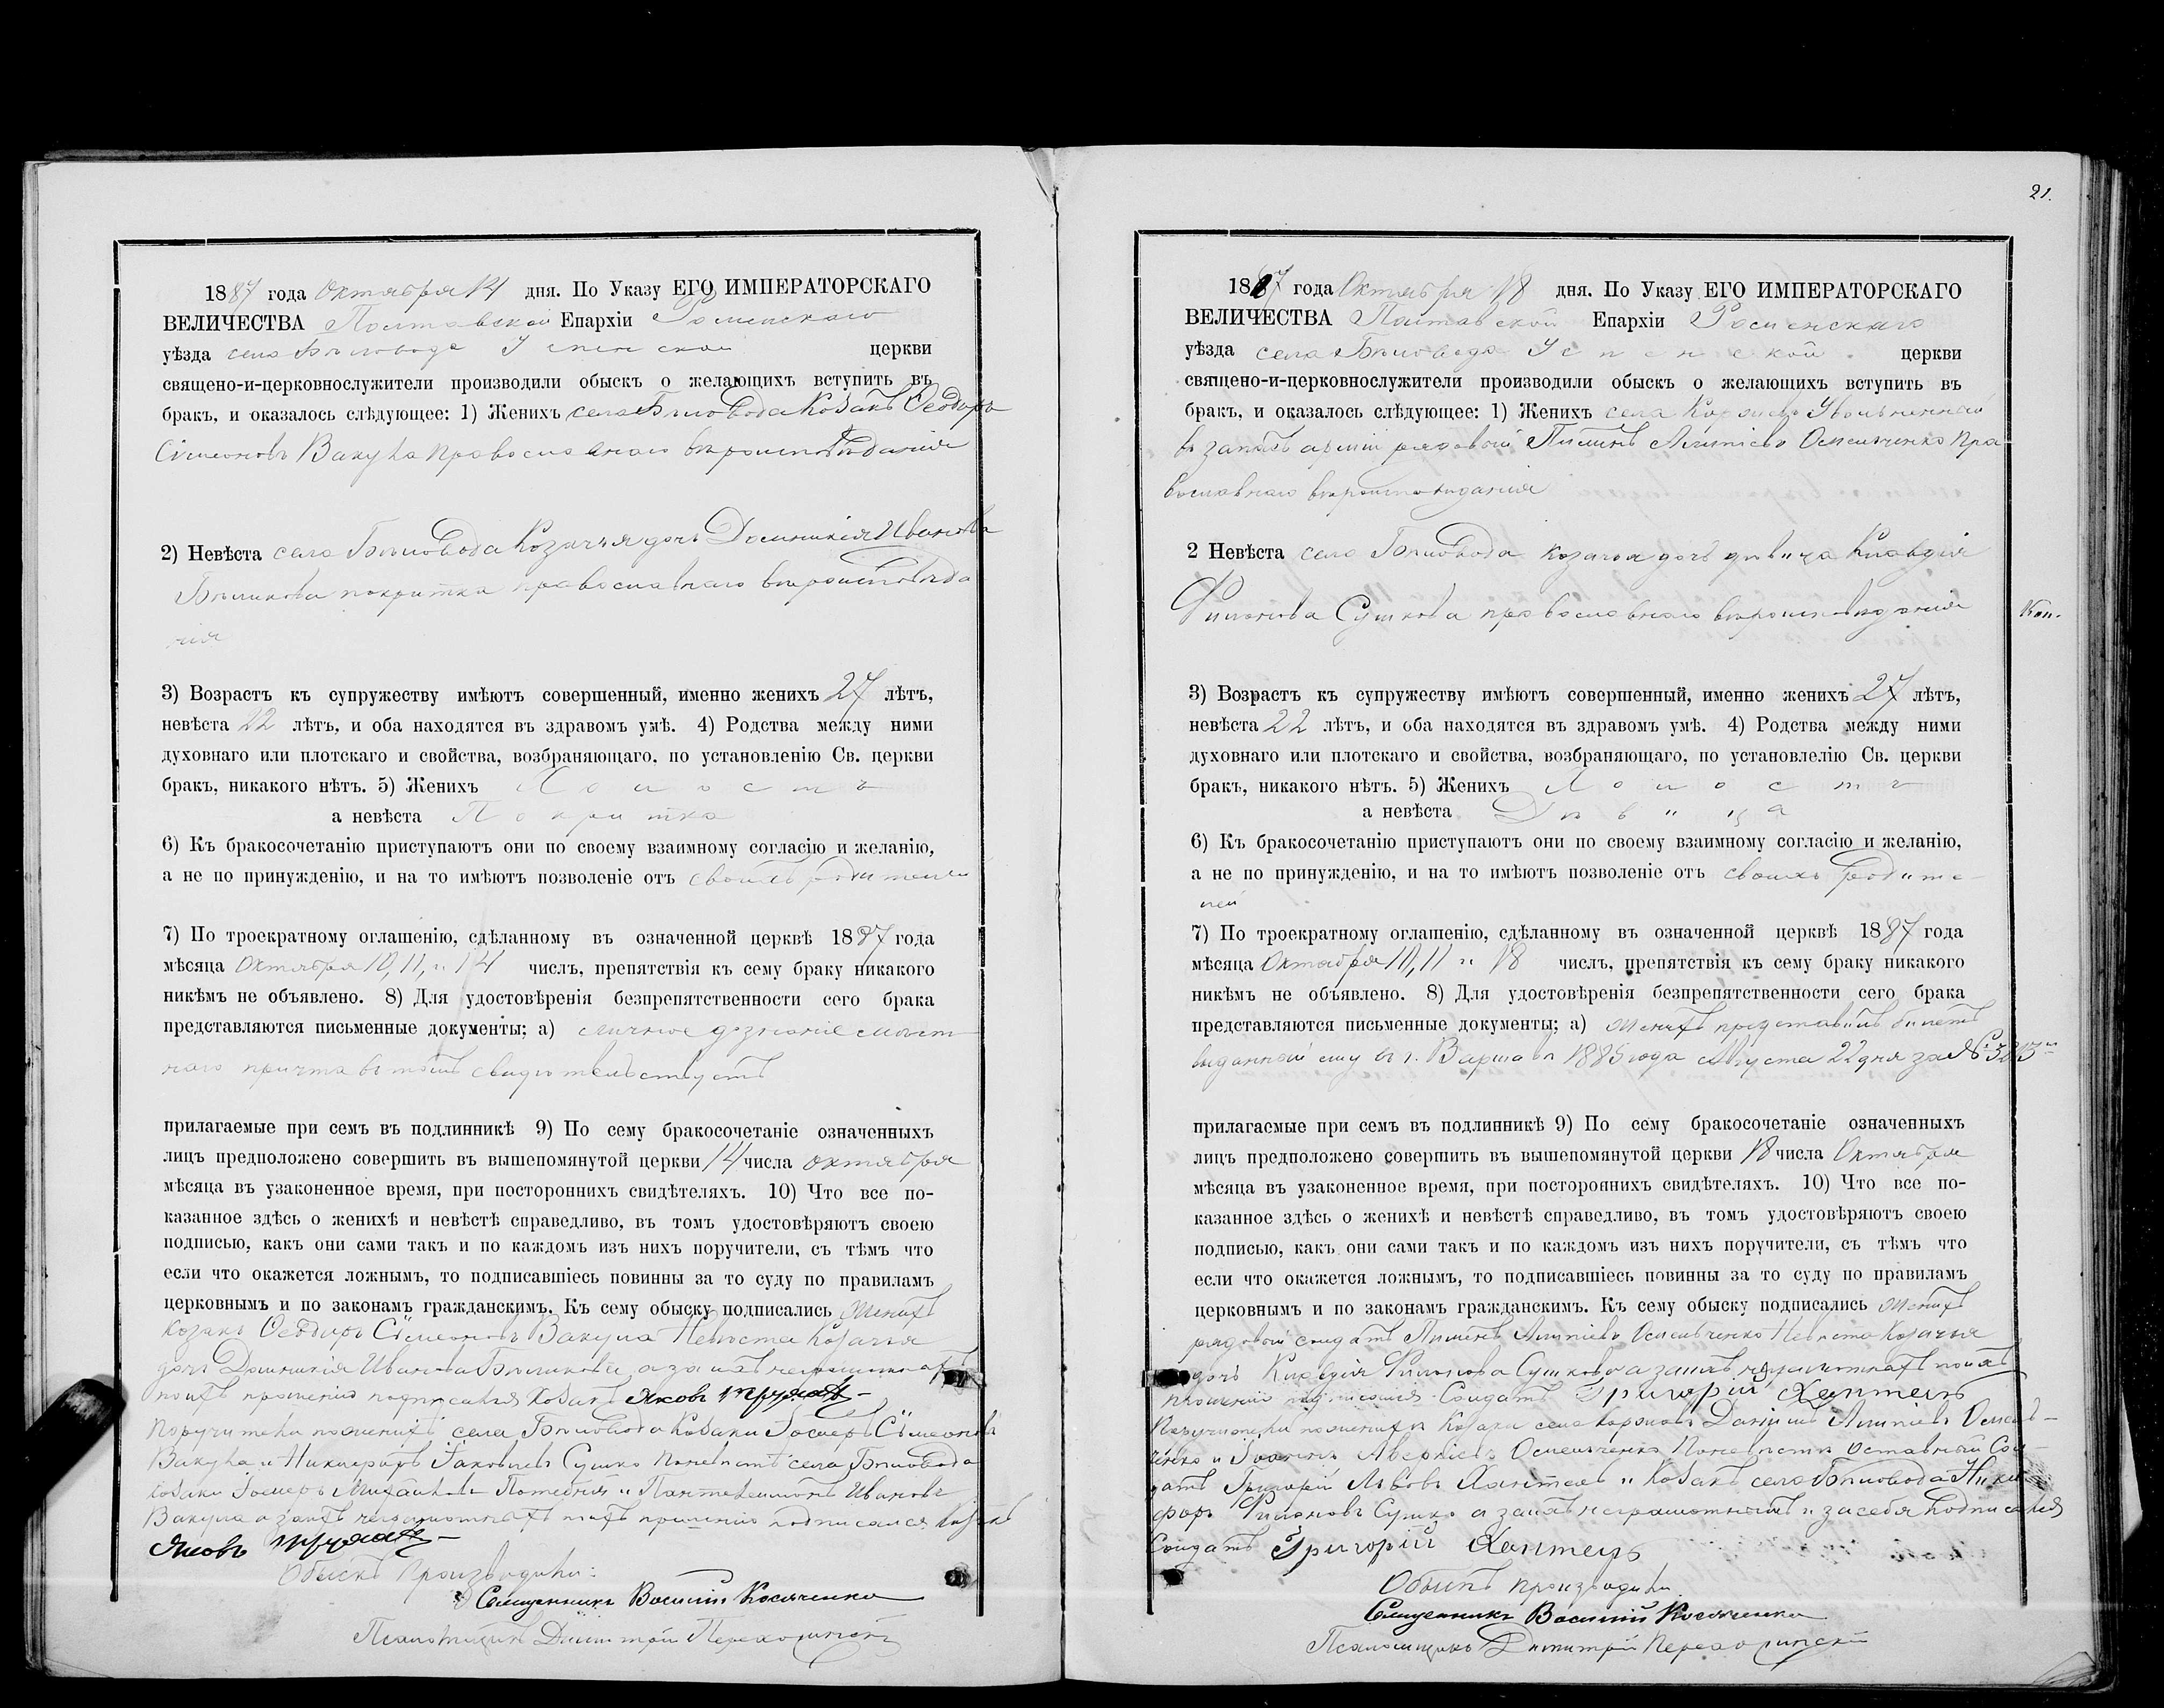 1887 года Октября 14 дня. По Указу ЕГО ИМПЕРАТОРСКАГО
ВЕЛИЧЕСТВА Полтавской Епархіи Роменскаго
уѣзда села Бѣловода Успенской церкви
священо-и-церковнослужители производили обыскъ о желающихъ вступить въ
бракъ, и оказалось слѣдующее: 1) Женихъ села Бѣловода Козакъ Ѳеодоръ
Сѵмеоновъ Вакула православнаго вѣроисповѣданія
2) Невѣста села Бѣловода Козачья дочь Домникія Иванова
Бѣликова покритка православнаго вѣроисповѣда
нія
3) Возрастъ къ супружеству имѣютъ совершенный, именно женихъ 27 лѣтъ,
невѣста 22 лѣтъ, и оба находятся въ здравомъ умѣ. 4) Родства между ними
духовнаго или плотскаго и свойства, возбраняющаго, по установленію Св. церкви
бракъ, никакого нѣтъ. 5) Женихъ Холостъ
а невѣста Покритка
6) Къ бракосочетанію приступаютъ они по своему взаимному согласію и желанію,
а не по принужденію, и на то имѣютъ позволеніе отъ своихъ родителей
7) По троекратному оглашенію, сдѣланному въ означенной церквѣ 1887 года
мѣсяца Октября 10, 11, и 14 числъ, препятствія къ сему браку никакого
никѣмъ не объявлено. 8) Для удостовѣренія безпрепятственности сего брака
представляются письменные документы; а) личное дознаніе мѣст
наго причта въ томъ свидѣтельствуетъ
прилагаемые при семъ въ подлинникѣ 9) По сему бракосочетаніе означенныхъ
лицъ предположено совершить въ вышепомянутой церкви 14 числа октября
мѣсяца въ узаконенное время, при постороннихъ свидѣтеляхъ. 10) Что все по-
казанное здѣсь о женихѣ и невѣстѣ справедливо, въ томъ удостовѣряютъ своею
подписью, какъ они сами такъ и по каждомъ изъ нихъ поручители, съ тѣмъ что
если что окажется ложнымъ, то подписавшіесь повинны за то суду по правиламъ
церковнымъ и по законамъ гражданскимъ. Къ сему обыску подписались женихъ
козакъ Ѳеодоръ Сѵмеоновъ Вакула Невѣста Козачья
дочь Домникія Иванова Бѣликова, а за ихъ неграмотнахъ
поихъ прошенію подписался Козакъ Яковъ
Поручители по женихѣ села Бѣловода Козаки Іосифъ Сѵмеоновъ
Вакула и Никифоръ Іаковлевъ Сушко По невѣстѣ села Бѣловода
козаки Іосифъ Михайловъ и Пантелеимонъ Ивановъ
Вакула а за ихъ неграмотнахъ поихъ прошенію подписался Козакъ
Яковъ
Обыскъ производили:
Священникъ Василій Косяченко
Псаломщикъ Димитрій
21.
1887 года Октября 18 дня. По Указу ЕГО ИМПЕРАТОРСКАГО
ВЕЛИЧЕСТВА Полтавской Епархіи Роменскаго
уѣзда села Бѣловода Успенской церкви
священо-и-церковнослужители производили обыскъ о желающихъ вступить въ
бракъ, и оказалось слѣдующее: 1) Женихъ села Уволенный
въ запасъ арміи рядовой Пименъ Омельченко пра
вославнаго вѣроисповѣданія
2 Невѣста села Бѣловода козачья дочь дѣвица Клавдія
Филонова Сушкова православнаго вѣроисповѣданія
Коп.
3) Возрастъ къ супружеству имѣютъ совершенный, именно женихъ 27 лѣтъ,
невѣста 22 лѣтъ, и оба находятся въ здравомъ умѣ. 4) Родства между ними
духовнаго или плотскаго и свойства, возбраняющаго, по установлелію Св. церкви
бракъ, никакого нѣтъ. 5) Женихъ Холостъ
а невѣста Дѣвица
6) Къ бракосочетанію приступаютъ они по своему взаимному согласію и желанію,
а не по принужденію, и на то имѣютъ позволеніе отъ своихъ родите-
лей
7) По троекратному оглашенію, сдѣланному въ означенной церквѣ 1887 года
мѣсяца Октября 10, 11 и 18 числъ, препятствія къ сему браку никакого
никѣмъ не объявлено. 8) Для удостовѣренія безпрепятственности сего брака
представляются письменные документы; а) женихъ представилъ билетъ
выданный ему въ г. Варшавѣ 1885 года Августа 22 дня за №
прилагаемые при семъ въ подлинникѣ 9) По сему бракосочетаніе означенныхъ
лицъ предположено совершить въ вышепомянутой церкви 18 числа Октября
мѣсяца въ узаконенное время, при постороннихъ свидѣтеляхъ. 10) Что все по-
казанное здѣсь о женихѣ и невѣстѣ справедливо, въ томъ удостовѣряютъ своею
подписью, какъ они сами такъ и по каждомъ изъ нихъ поручители, съ тѣмъ что
если что окажется ложнымъ, то подписавшіесь повинны за то суду по правиламъ
церковнымъ и по законамъ гражданскимъ. Къ сему обыску подписались женихъ
рядовой солдатъ Пименъ Омельченко Невѣста Козачья
дочь Клавдія Филонова Сушкова а за ихъ неграмотнахъ поихъ
прошенію подписался Солдатъ Григорій Хаптецъ
Поручители по женихѣ козаки села Даніилъ Омель-
ченко и Іоаннъ Аверкіевъ Омельченко По невѣстѣ Отставный Сол-
датъ Григорій Львовъ и Козакъ села Бѣловода Ники
форъ Филоновъ Сушко а за ихъ неграмотныхъ и за себя подписался
Солдатъ Григорій Хаптецъ
Обыскъ производили
Священникъ Василій Косяченко
Псаломщикъ Димитрій